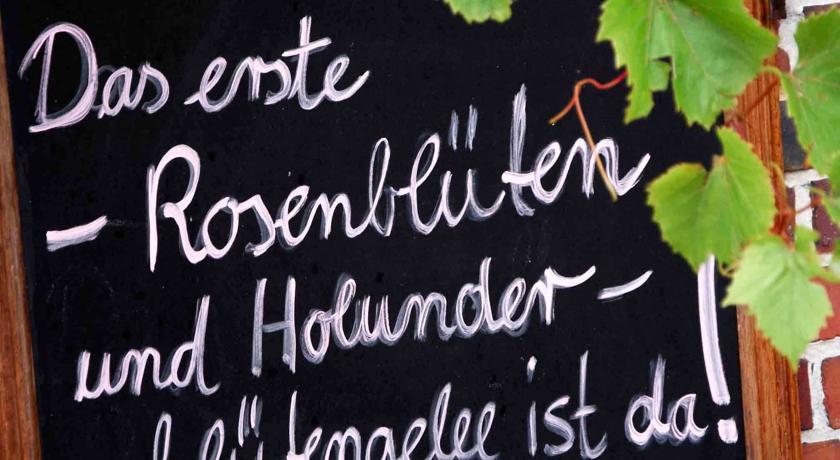 Das erste
- Rosenblüten
und Holunder-
blütengelee ist da!